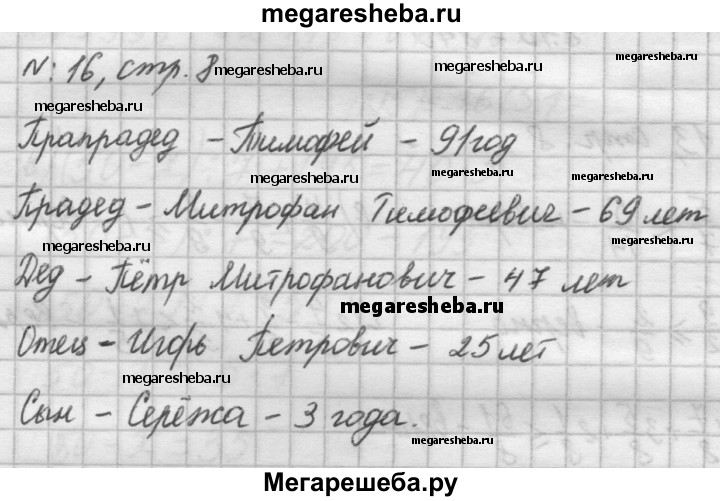 megaresheba.ru
№: 16, стр. 8 megaresheba.ru megaresheba.ru
megaresheba.ru
Прапрадед - Тимофей - 91 год
megaresheba.ru megaresheba.ru megaresheba.ru
Прадед - Митрофан Тимофеевич - 69 лет
megaresheba.ru megaresheba.ru megaresheba.ru
Дед - Пётр Митрофанович - 47 лет
megaresheba.ru
Отец - Игорь Петрович - 25 лет
megaresheba.ru megaresheba.ru
Сын - Серёжа - 3 года.
megaresheba.ru
Мегарешеба.ру